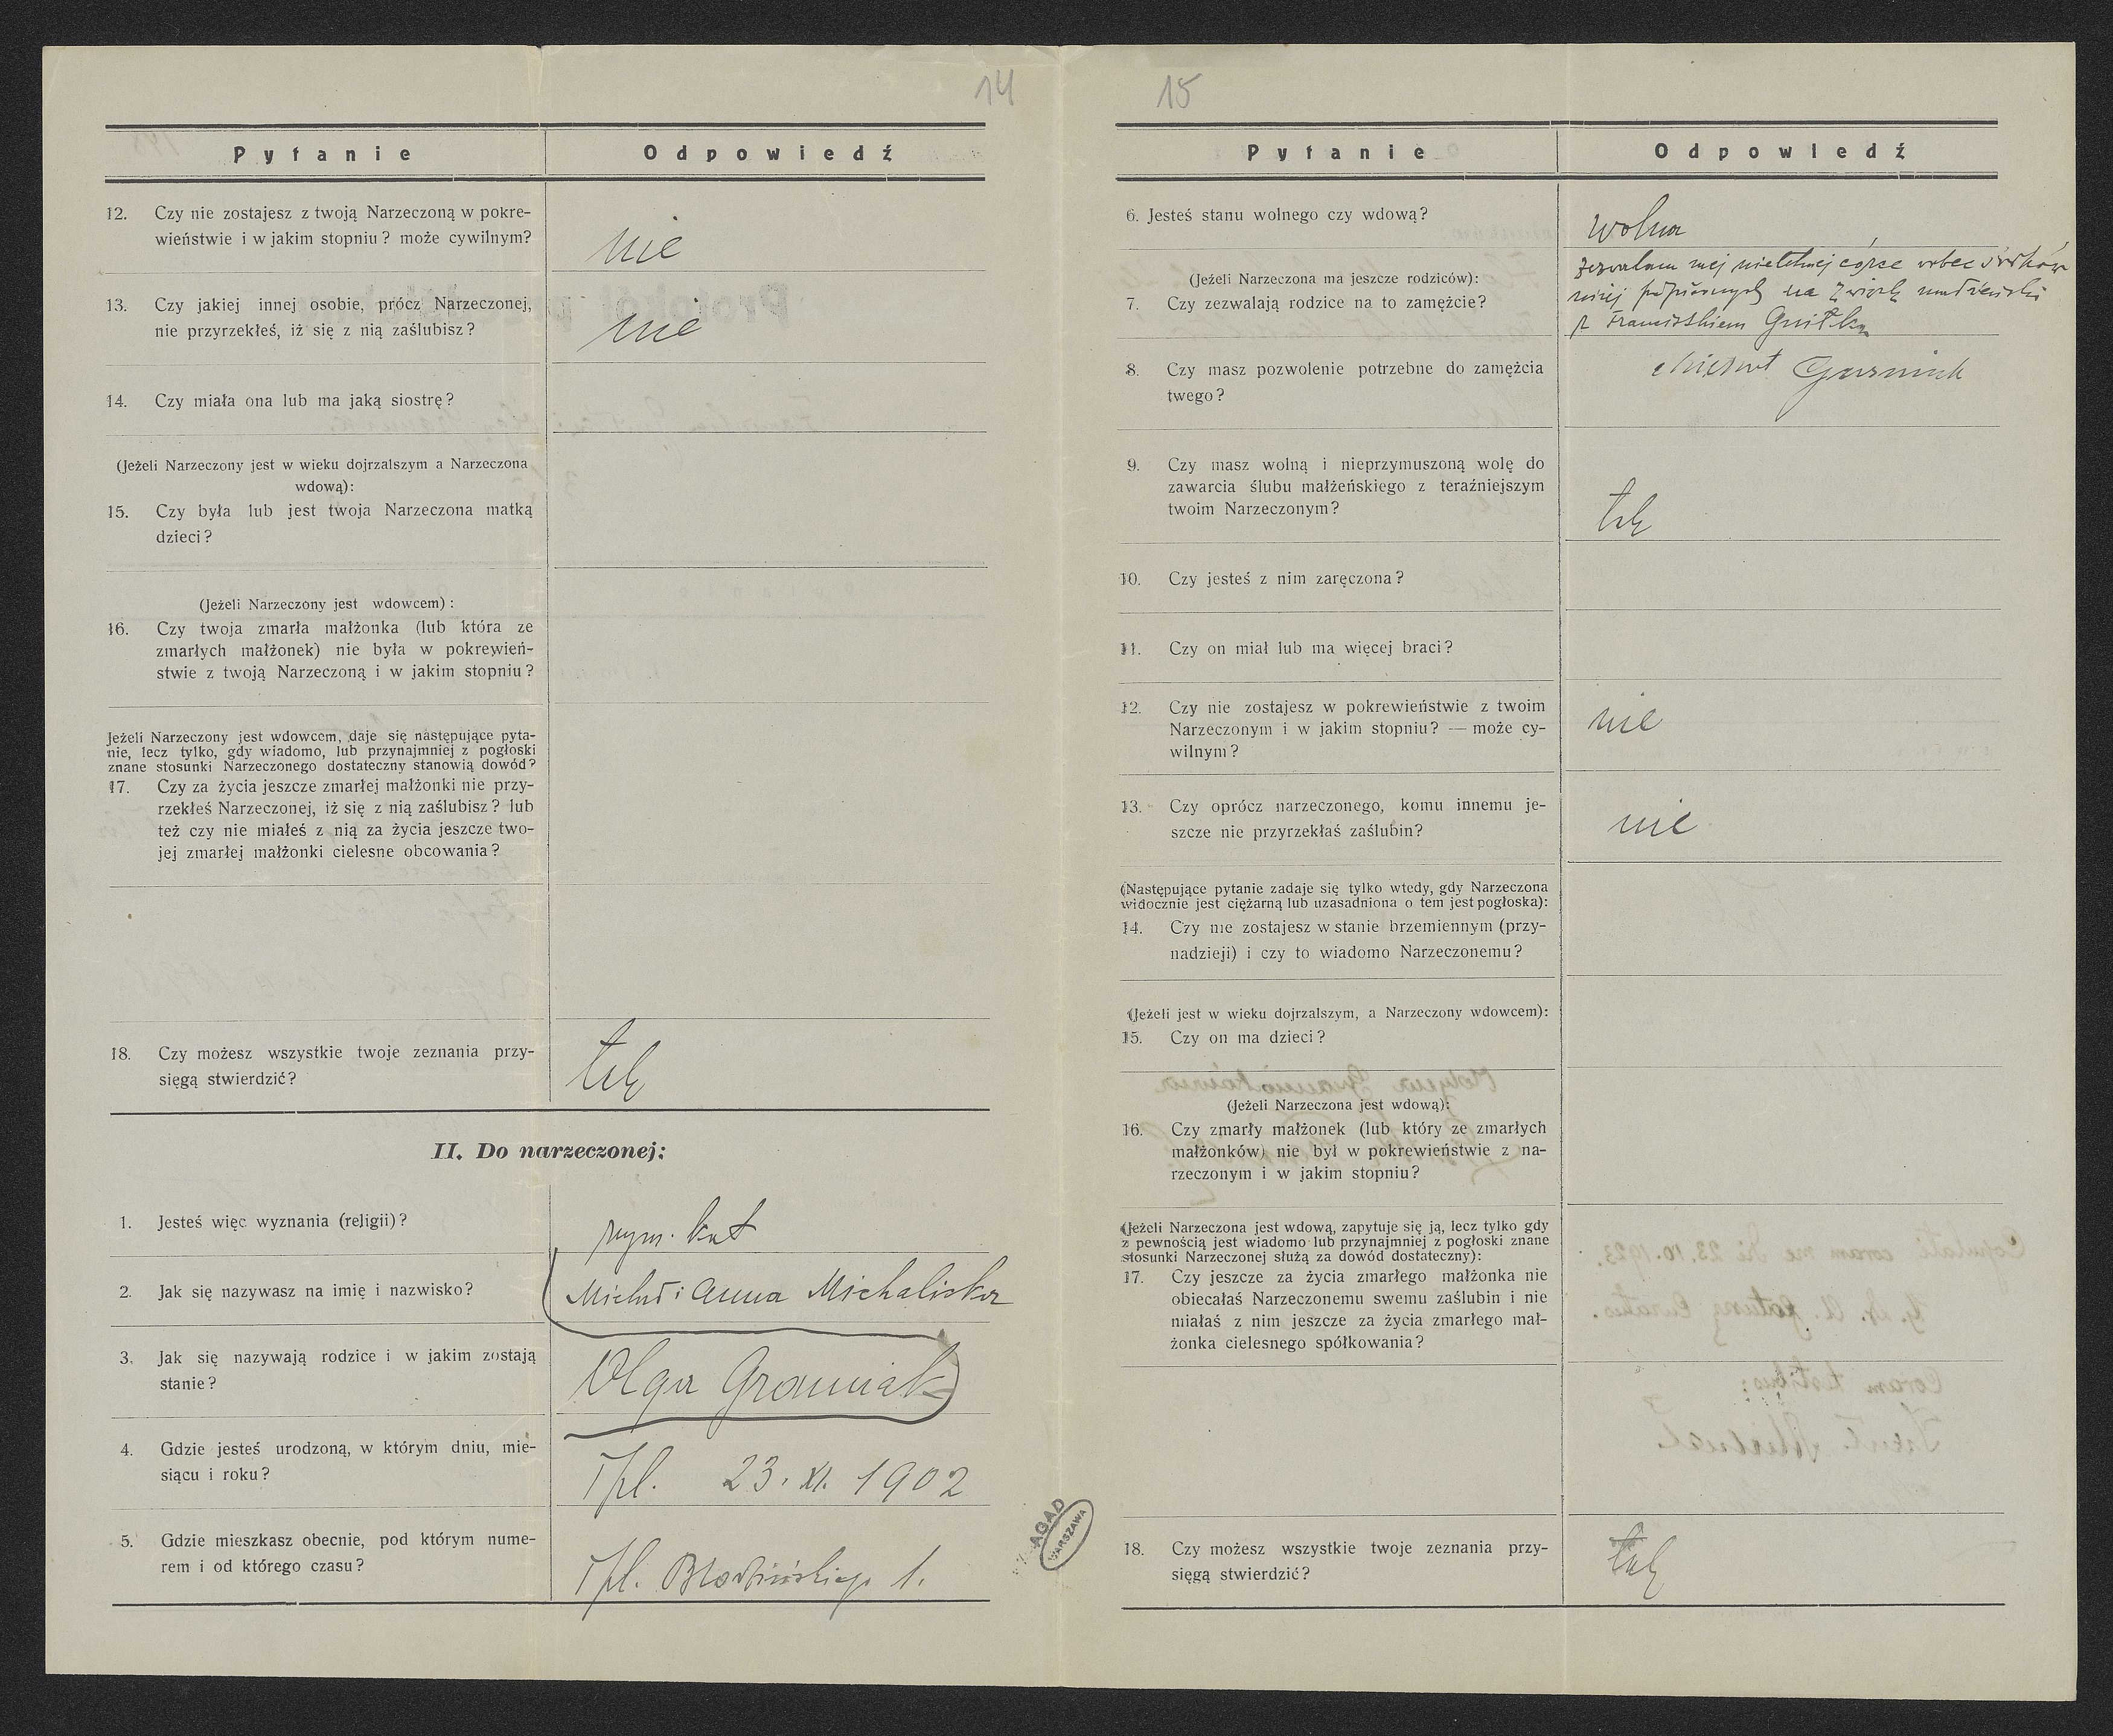 14
Pytanie Odpowiedź
12. Czy nie zostajesz z twoją Narzeczoną w pokre-
wieństwie i w jakim stopniu? może cywilnym?
nie
13. Czy jakiej innej osobie, prócz Narzeczonej,
nie przyrzekłeś, iż się z nią zaślubisz?
nie
14. Czy miała ona lub ma jaką siostrę?
(Jeżeli Narzeczony jest w wieku dojrzalszym a Narzeczona
wdową):
15. Czy była lub jest twoja Narzeczona matką
dzieci?
(Jeżeli Narzeczony jest wdowcem):
16. Czy twoja zmarła małżonka (lub która ze
zmarłych małżonek) nie była w pokrewień-
stwie z twoją Narzeczoną i w jakim stopniu?
Jeżeli Narzeczony jest wdowcem, daje się następujące pyta-
nie, lecz tylko, gdy wiadomo, lub przynajmniej z pogłoski
znane stosunki Narzeczonego dostateczny stanowią dowód?
17. Czy za życia jeszcze zmarłej małżonki nie przy-
rzekłeś Narzeczonej, iż się z nią zaślubisz? lub
też czy nie miałeś z nią za życia jeszcze two-
jej zmarłej małżonki cielesne obcowania?
18. Czy możesz wszystkie twoje zeznania przy-
sięgą stwierdzić?
tak
II. Do narzeczonej:
1. Jesteś więc wyznania (religii)?
rzym. kat
2. Jak się nazywasz na imię i nazwisko?
Michał i Anna Michaliska
3. Jak się nazywają rodzice i w jakim zostają
stanie?
Olga Grauniak
4. Gdzie jesteś urodzoną, w którym dniu, mie-
siącu i roku?
Tpl. 23. XI. 1902
5. Gdzie mieszkasz obecnie, pod którym nume-
rem i od którego czasu?
Tpl. 1.
AGAD
WARSZAWA
15
Pytanie Odpowiedź
6. Jesteś stanu wolnego czy wdową?
wolna
(Jeżeli Narzeczona ma jeszcze rodziców):
7. Czy zezwalają rodzice na to zamężcie?
zezwalam mej nieletniej córce wobec świadków
niżej podpisanych na związek małżeński
z Franciszkiem Gnitką
8. Czy masz pozwolenie potrzebne do zamężcia
twego?
Michał
9. Czy masz wolną i nieprzymuszoną wolę do
zawarcia ślubu małżeńskiego z teraźniejszym
twoim Narzeczonym?
tak
10. Czy jesteś z nim zaręczona?
11. Czy on miał lub ma więcej braci?
12. Czy nie zostajesz w pokrewieństwie z twoim
Narzeczonym i w jakim stopniu? — może cy-
wilnym?
nie
13. Czy oprócz narzeczonego, komu innemu je-
szcze nie przyrzekłaś zaślubin?
nie
(Następujące pytanie zadaje się tylko wtedy, gdy Narzeczona
widocznie jest ciężarną lub uzasadniona o tem jest pogłoska):
14. Czy nie zostajesz w stanie brzemiennym (przy-
nadzieji) i czy to wiadomo Narzeczonemu?
(Jeżeli jest w wieku dojrzalszym, a Narzeczony wdowcem):
15. Czy on ma dzieci?
(Jeżeli Narzeczona jest wdową):
16. Czy zmarły małżonek (lub który ze zmarłych
małżonków) nie był w pokrewieństwie z na-
rzeczonym i w jakim stopniu?
(Jeżeli Narzeczona jest wdową, zapytuje się ją, lecz tylko gdy
z pewnością jest wiadomo lub przynajmniej z pogłoski znane
stosunki Narzeczonej służą za dowód dostateczny):
17. Czy jeszcze za życia zmarłego małżonka nie
obiecałaś Narzeczonemu swemu zaślubin i nie
miałaś z nim jeszcze za życia zmarłego mał-
żonka cielesnego spółkowania?
18. Czy możesz wszystkie twoje zeznania przy-
sięgą stwierdzić?
tak